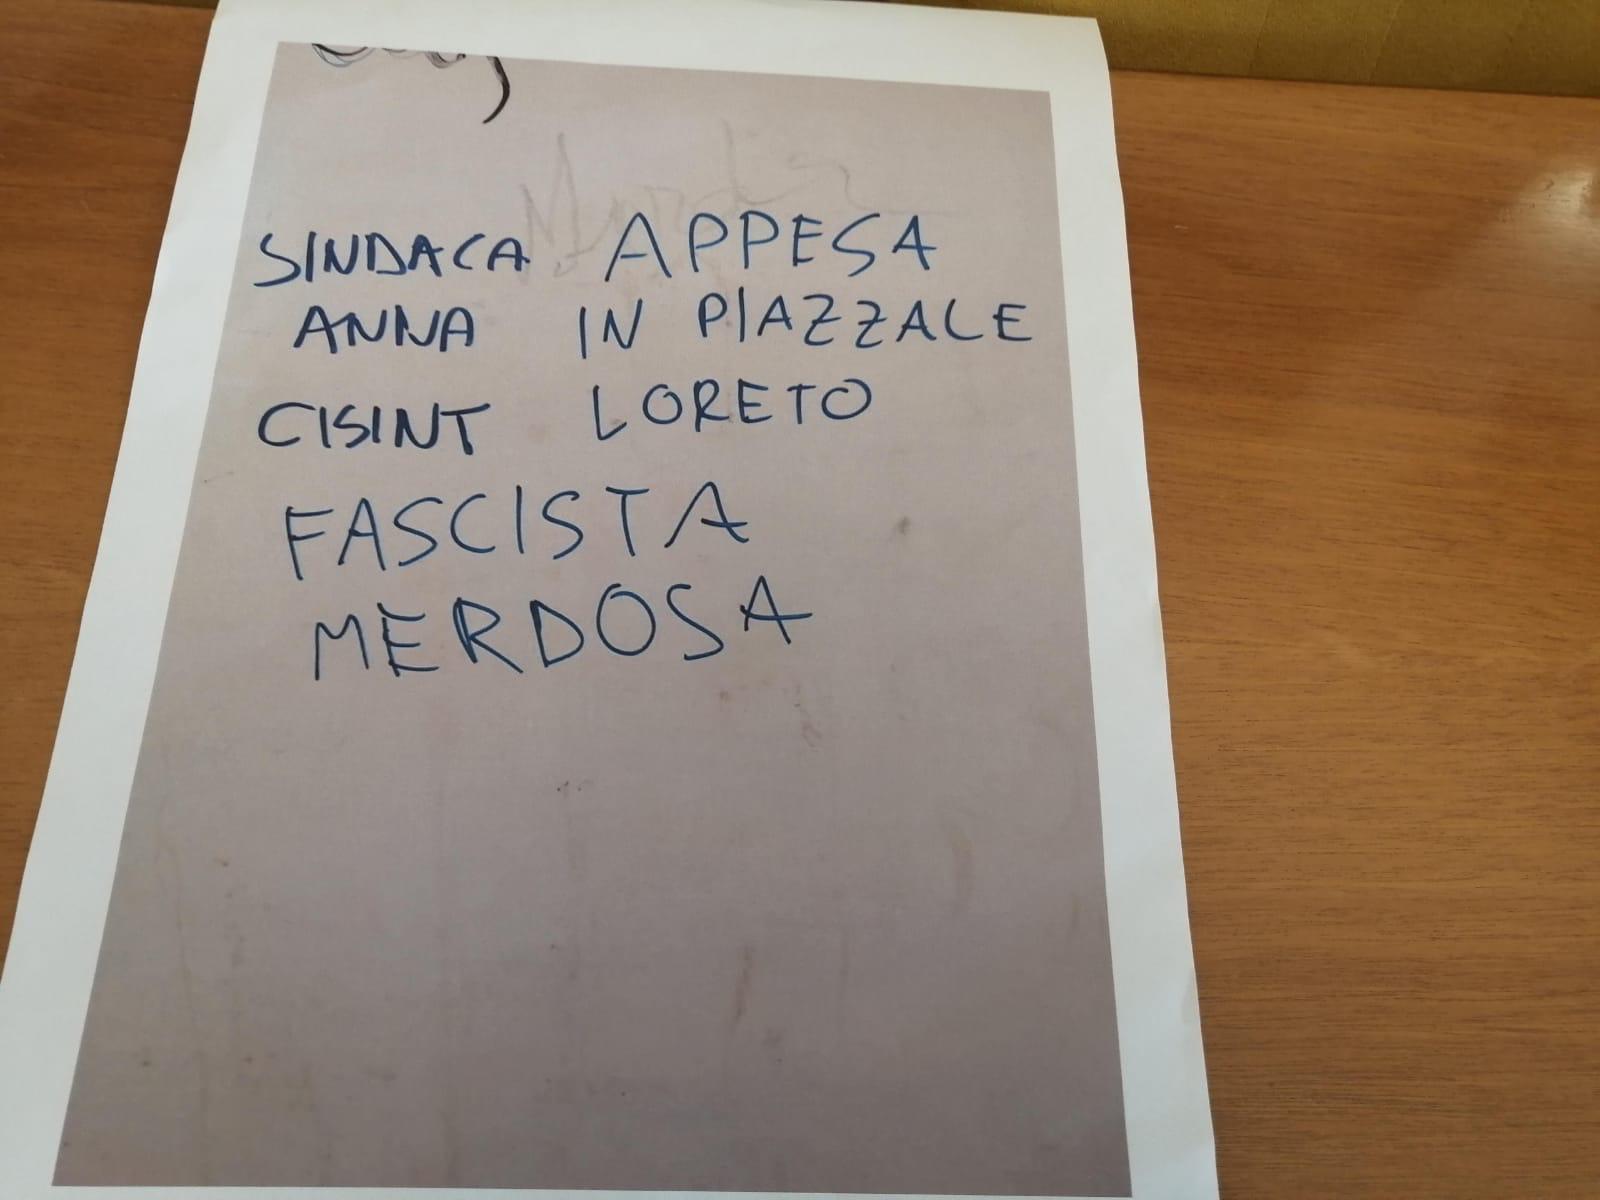 SINDACA APPESA
ANNA IN PIAZZALE
CISINT LORETO
FASCISTA
MERDOSA